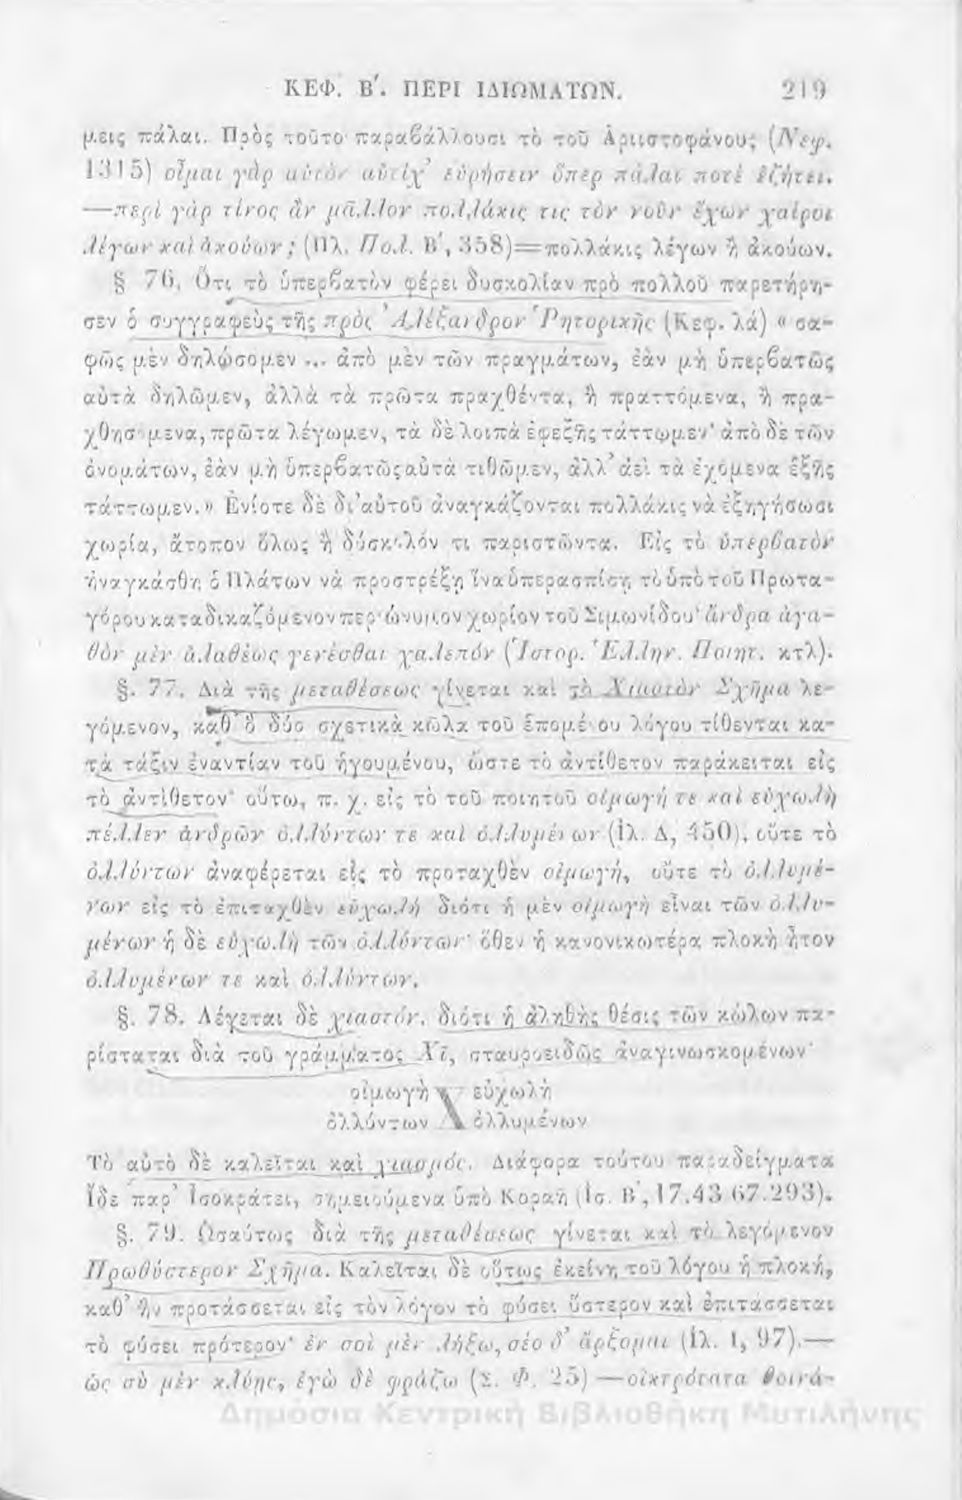 ΚΕΦ. Β΄. ΠΕΡΙ ΙΔΙΩΜΑΤΩΝ. 219
μεις πάλαι. Πρὸς τοῦτο παραβάλλουσι τὸ τοῦ Ἀριστοφάνους (Νεφ.
1315) οἶμαι γὰρ αὐτὸν αὐτίχ' εὑρήσειν ὅπερ πάλαι ποτὲ ἐζήτει.
—περὶ γὰρ τίνος ἂν μᾶλλον πολλάκις τις τὸν νοῦν ἔχων χαίροι
λέγων καὶ ἀκούων; (Πλ. Πολ. Β΄, 358)=πολλάκις λέγων ἢ ἀκούων.
§ 76. Ὅτι τὸ ὑπερβατὸν φέρει δυσκολίαν πρὸ πολλοῦ παρετήρη-
σεν ὁ συγγραφεὺς τῆς πρὸς Ἀλέξανδρον Ῥητορικῆς (Κεφ. λά) « σα-
φῶς μὲν δηλώσομεν ... ἀπὸ μὲν τῶν πραγμάτων, ἐὰν μὴ ὑπερβατῶς
αὐτὰ δηλῶμεν, ἀλλὰ τὰ πρῶτα πραχθέντα, ἢ πραττόμενα, ἢ πρα-
χθησόμενα, πρῶτα λέγωμεν, τὰ δὲ λοιπὰ ἐφεξῆς τάττωμεν· ἀπὸ δὲ τῶν
ὀνομάτων, ἐὰν μὴ ὑπερβατῶς αὐτὰ τιθῶμεν, ἀλλ' ἀεὶ τὰ ἐχόμενα ἑξῆς
τάττωμεν.» Ἐνίοτε δὲ δι' αὐτοῦ ἀναγκάζονται πολλάκις νὰ ἐξηγήσωσι
χωρία, ἄτοπον ὅλως ἢ δύσκολόν τι παριστῶντα. Εἰς τὸ ὑπερβατὸν
ἠναγκάσθη ὁ Πλάτων νὰ προστρέξῃ ἵνα ὑπερασπίσῃ τὸ ὑπὸ τοῦ Πρωτα-
γόρου καταδικαζόμενον περιώνυμον χωρίον τοῦ Σιμωνίδου· ἄνδρα ἀγα-
θὸν μὲν ἀλαθέως γενέσθαι χαλεπόν (Ἱστορ. Ἑλλην. Ποιητ. κτλ).
§. 77. Διὰ τῆς μεταθέσεως γίνεται καὶ τὸ Χιαστὸν Σχῆμα λε-
γόμενον, καθ' ὃ δύο σχετικὰ κῶλα τοῦ ἑπομένου λόγου τίθενται κα-
τὰ τάξιν ἐναντίαν τοῦ ἡγουμένου, ὥστε τὸ ἀντίθετον παράκειται εἰς
τὸ ἀντίθετον· οὕτω, π. χ. εἰς τὸ τοῦ ποιητοῦ οἰμωγή τε καὶ εὐχωλὴ
πέλλεν ἀνδρῶν ὀλλύντων τε καὶ ὀλλυμένων (Ἰλ. Δ, 450), οὔτε τὸ
ὀλλύντων ἀναφέρεται εἰς τὸ προταχθὲν οἰμωγή, οὔτε τὸ ὀλλυμέ-
νων εἰς τὸ ἐπιταχθὲν εὐχωλή διότι ἡ μὲν οἰμωγὴ εἶναι τῶν ὀλλυ-
μένων ἡ δὲ εὐχωλὴ τῶν ὀλλύντων· ὅθεν ἡ κανονικωτέρα πλοκὴ ἦτον
ὀλλυμένων τε καὶ ὀλλύντων.
§. 78. Λέγεται δὲ χιαστόν, διότι ἡ ἀληθὴς θέσις τῶν κώλων πα-
ρίσταται διὰ τοῦ γράμματος Χῖ, σταυροειδῶς ἀναγινωσκομένων·
οἰμωγὴ Χ εὐχωλὴ
ὀλλύντων ὀλλυμένων
Τὸ αὐτὸ δὲ καλεῖται καὶ χιασμός. Διάφορα τούτου παραδείγματα
ἴδε παρ' Ἰσοκράτει, σημειούμενα ὑπὸ Κοραῆ (Ἰσ. Β΄, 17.43.67.293).
§. 79. Ὡσαύτως διὰ τῆς μεταθέσεως γίνεται καὶ τὸ λεγόμενον
Πρωθύστερον Σχῆμα. Καλεῖται δὲ οὕτως ἐκείνη τοῦ λόγου ἡ πλοκή,
καθ' ἣν προτάσσεται εἰς τὸν λόγον τὸ φύσει ὕστερον καὶ ἐπιτάσσεται
τὸ φύσει πρότερον· ἐν σοὶ μὲν λήξω, σέο δ' ἄρξομαι (Ἰλ. Ι, 97).—
ὡς σὺ μὲν κλύῃς, ἐγὼ δὲ φράζω (Σ. Φ. 25) —οἰκτρότατα θοινά-
Δημόσια Κεντρική Βιβλιοθήκη Μυτιλήνης